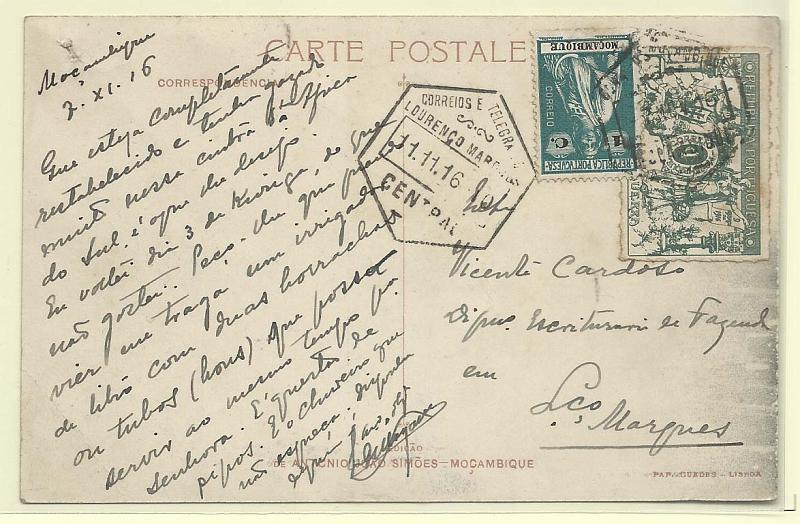 CARTE POSTALE
CORRESPONDENCIA
Moçambique
7. XI. 16
Que esteja completamente
restabelecido e tenha gozado
muito nessa cintra da Africa
do Sul, é o que lhe desejo.
Eu voltei dia 3 de
não gostei. Peço-lhe que quando
vier me traga um irrigador
de libro com duas borrachas
ou tubos (bons) que possa
servir ao mesmo tempo pa
senhora. E' questão de
pipos. E o chuveiro que
não esqueça.
CORREIOS E TELEGRA
LOURENÇO MARQUES
11.11.16
CENTRAL
MOÇAMBIQUE
CORREIO
1 C.
REPUBLICA PORTUGUESA
PORTUGUESA
Vicente Cardoso
Dipno. Escriturario de Fazenda
em
Lço Marques
EDIÇÃO
DE ANTONIO JOÃO SIMÕES—MOÇAMBIQUE
PAP. GUEDES - LISBOA